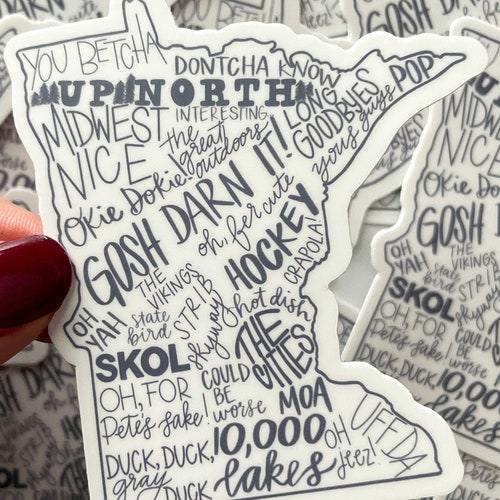 YOU BETCHA
DONTCHA KNOW
UP NORTH
POP
MIDWEST
NICE
INTERESTING...
the great outdoors
LONG GOODBYES
yous guys
Okie Dokie
GOSH DARN IT!
oh, fer cute
HOCKEY
CRADOLA!
OH YAH
THE VIKINGS
state bird
STRIB
skyway
hot dish
SKOL
THE CITIES
OH, FOR
Pete's sake!
COULD BE worse
MOA
UFFDA
DUCK, DUCK, gray DUCK
10,000 lakes
OH jeez!
GOSH DARN
OH YAH
THE VIKINGS
state bird
STRIB
SKOL
OH, FOR
Pete's sake!
COULD BE worse
DUCK, DUCK,
10,000
lakes